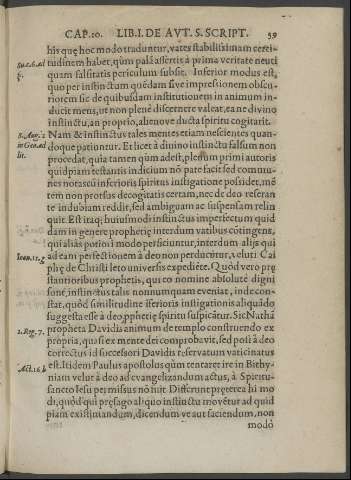 CAP. 10. LIB. I. DE AVT. S. SCRIPT. 59
his quę hoc modo traduntur, vates stabilissimam certi-
tudinem habet, qūm palā assērtis à prima veritate neuti
quam falsitatis periculum subsit. Inferior modus est,
quo per instinctum quēdam sive impressionem obscu-
riorem sic de quibusdam institutionem in animum in-
ducit mens, ut non plenè discernere valeat, ea ne divino
instinctu, an proprio, alienove ducta spiritu cogitarit.
Nam & instinctus tales mentes etiam nescientes quan-
doque patiuntur. Et licet à divino instinctu falsum non
procedat, quia tamen qūm adest, plerum primi autoris
quidpiam testantis indicium nō pate facit sed commu-
nes notas cū inferioris spiritus instigatione possidet, mē
tem non prorsus de cogitatis certam, nec de deo referan
te indubiam reddit, sed ambiguam ac suspensam relin
quit. Est itaq; huiusmodi instinctus imperfectum quid
dam in genere prophetię interdum vatibus cōtingens,
qui aliàs potiori modo perficiuntur, interdum alijs qui
ad eam perfectionem à deo non perducuntur, veluti Cai
phę de Christi leto universis expediēte. Quòd vero prę
stantioribus prophetis, qui eo nomine absolutè digni
sunt, instinctus talis nonnumquam eveniat, inde con-
stat, quòd similitudine iferioris instigationis aliquādo
suggesta esse à deo, pphetię spiritu suspicātur. Sic Nathā
propheta Davidis animum de templo construendo ex
propria, quasi ex mente dei comprobavit, sed postà deo
correctus id successori Davidis reservatum vaticinatus
est. Itidem Paulus apostolus qūm tentaret ire in Bithy-
niam velut à deo ad evangelizandum actus, à Spiritu-
sancto Iesu permissus nō fuit. Differunt prętereà hi mo
di, quòd qui pręsago aliquo instinctu movētur ad quid
piam existimandum, dicendum ve aut faciendum, non
modò
S. Aug. 2
in Gen. ad
lit.
Ioan. 11. g
2. Reg. 7.
Act. 16. b